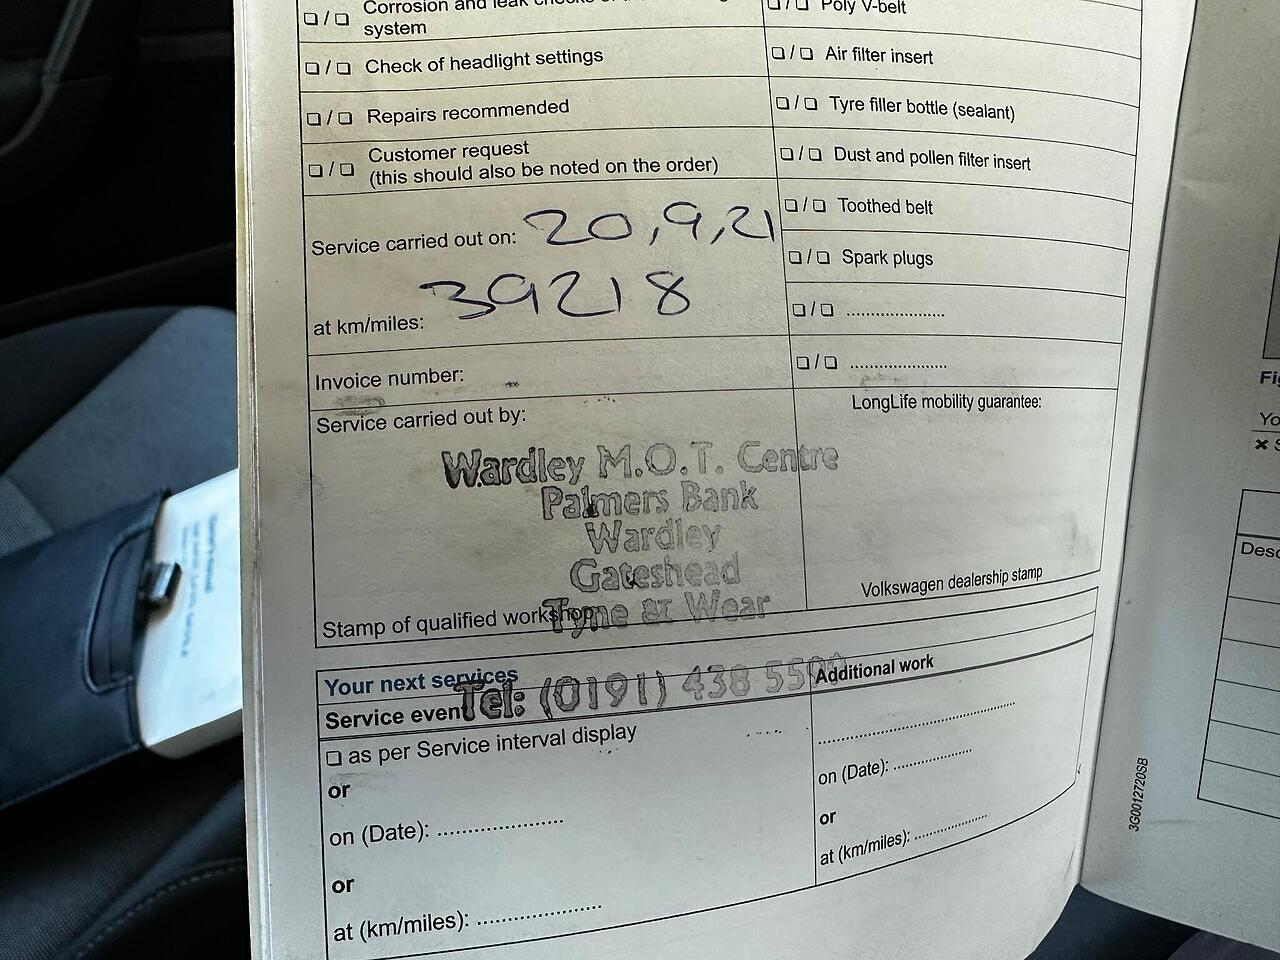 Corrosion and leak checks of the
system
Check of headlight settings
Repairs recommended
Customer request
(this should also be noted on the order)
Service carried out on: 20,9,21
at km/miles: 39218
Invoice number:
Service carried out by:
Wardley M.O.T. Centre
Palmers Bank
Wardley
Gateshead
Tyne & Wear
Stamp of qualified workshop
Tel: (0191) 438
Poly V-belt
Air filter insert
Tyre filler bottle (sealant)
Dust and pollen filter insert
Toothed belt
Spark plugs
LongLife mobility guarantee:
Volkswagen dealership stamp
Your next services
Service event
as per Service interval display
or
on (Date):
or
at (km/miles):
Additional work
on (Date):
or
at (km/miles):
3G0012720SB